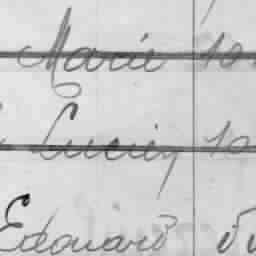 Marie 10
Lucien 10
Edouard